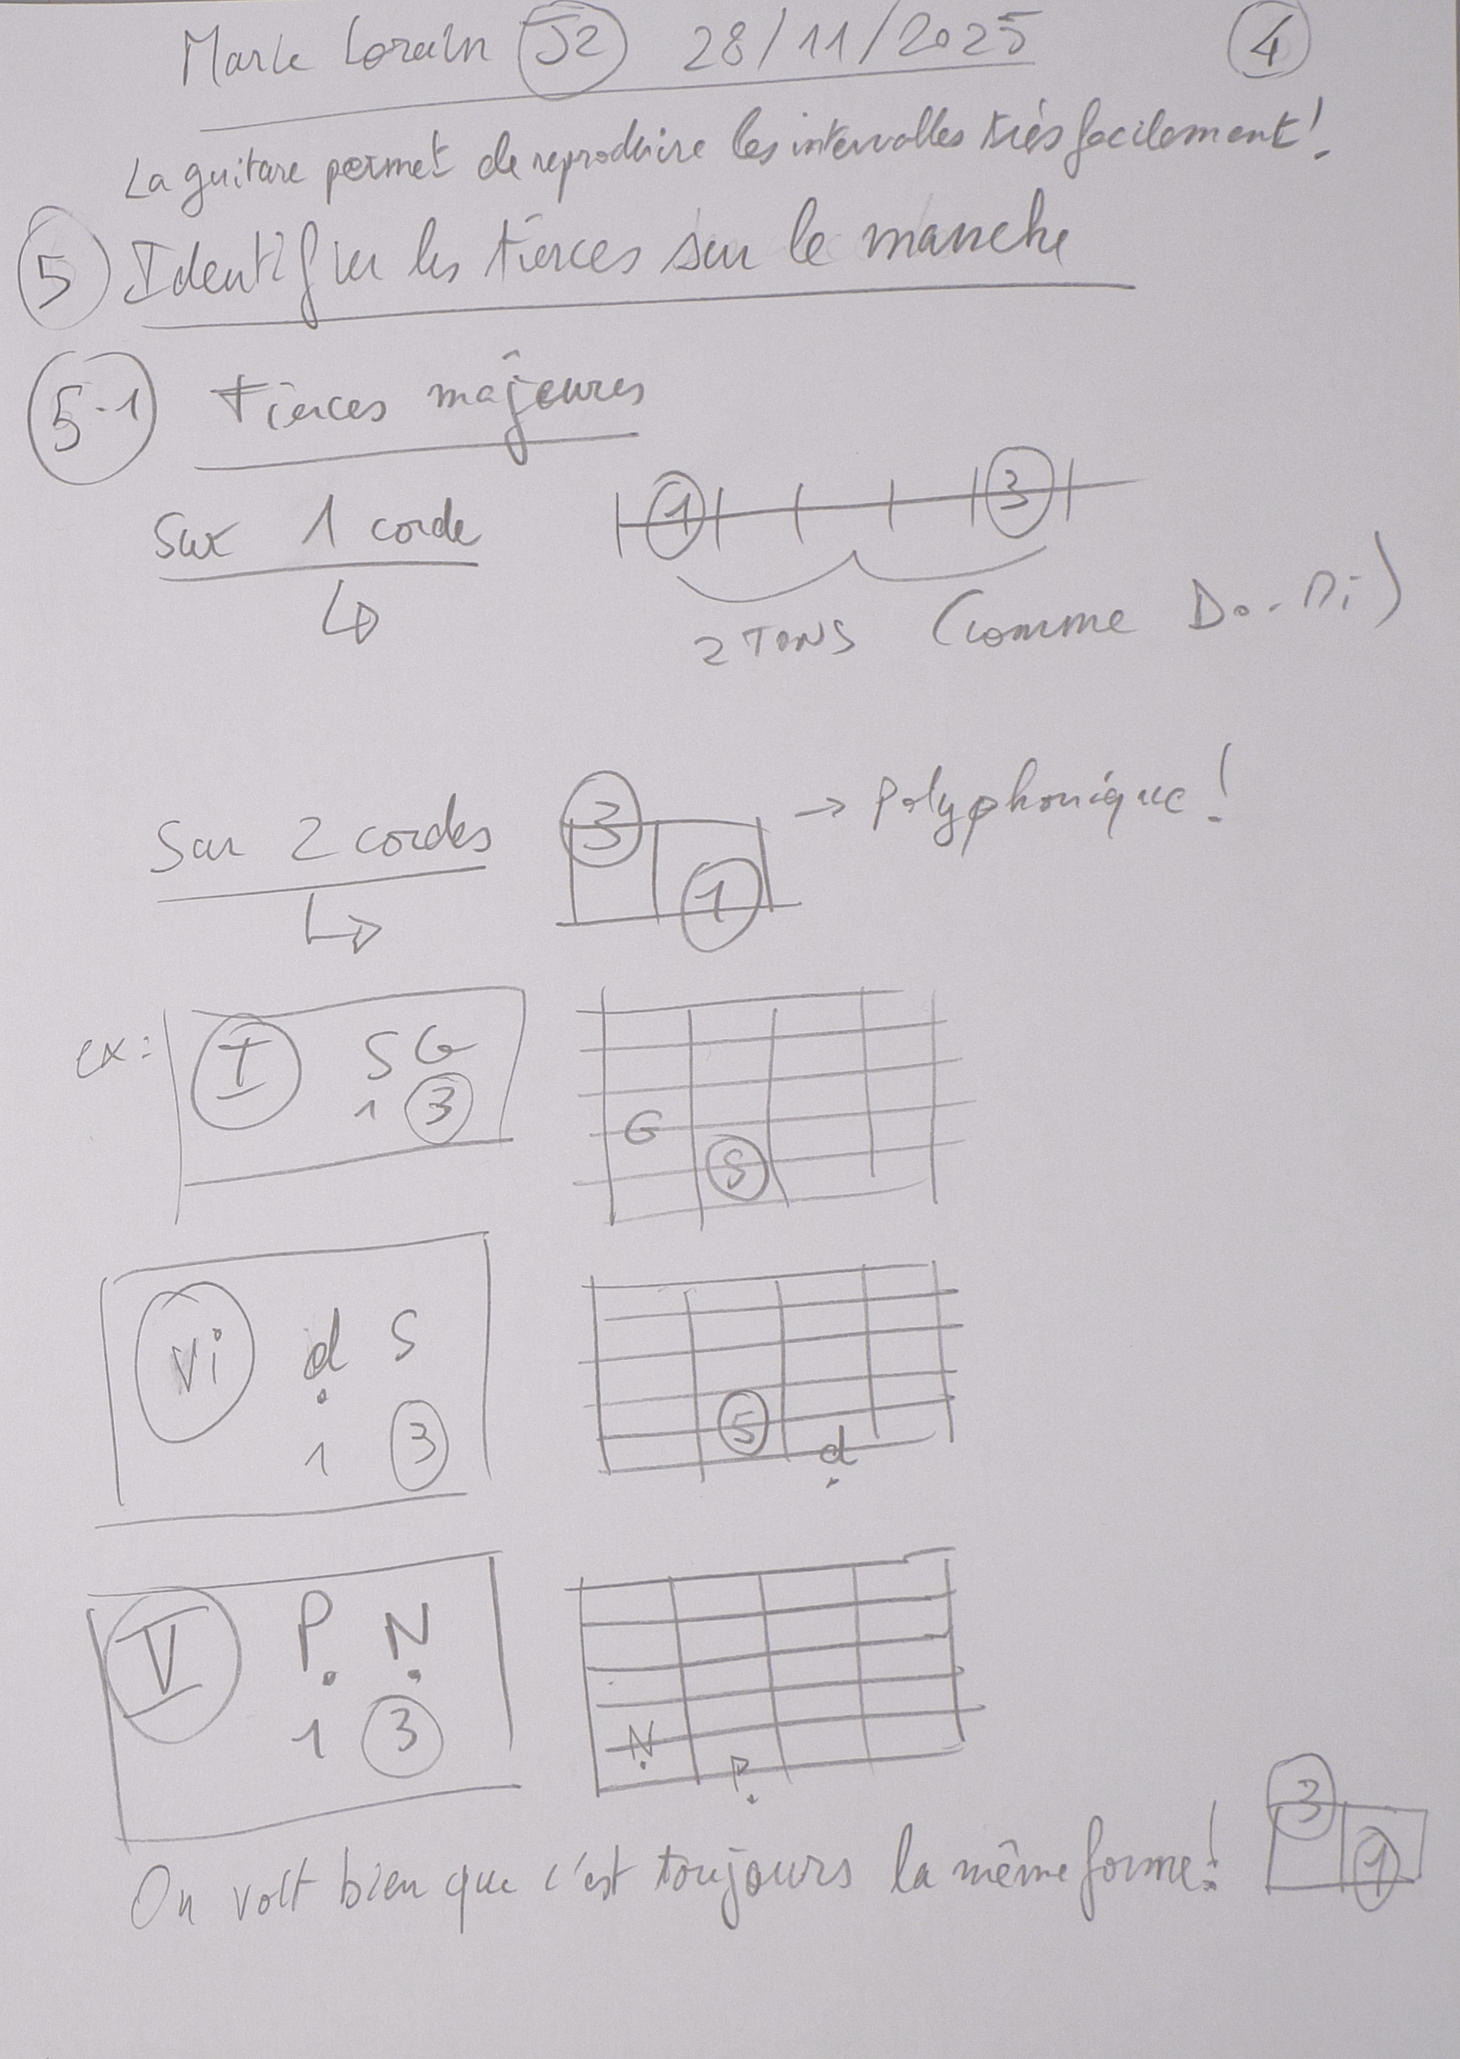 Marc Lorain J2 28/11/2025 4
La guitare permet de reproduire les intervalles très facilement!
5 Identifier les tierces sur le manche
5-1 Tierces majeures
Sur 1 corde 1 3
2 TONS (comme Do-Mi)
Sur 2 cordes 3 1 → Polyphonique!
ex: I S G G
1 3 S
Vi d S S
1 3 d
V P N N
1 3 P
On voit bien que c'est toujours la même forme! 3 1